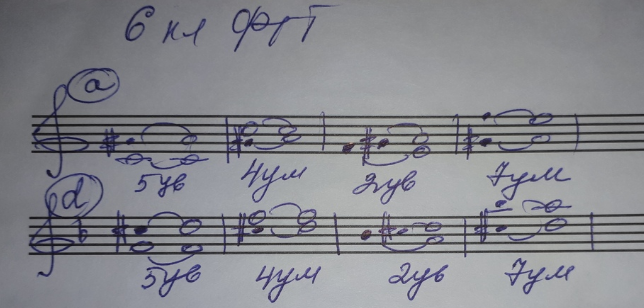 6 кл ФПТ
a
5ув 4ум 2ув 7ум
d
5ув 4ум 2ув 7ум